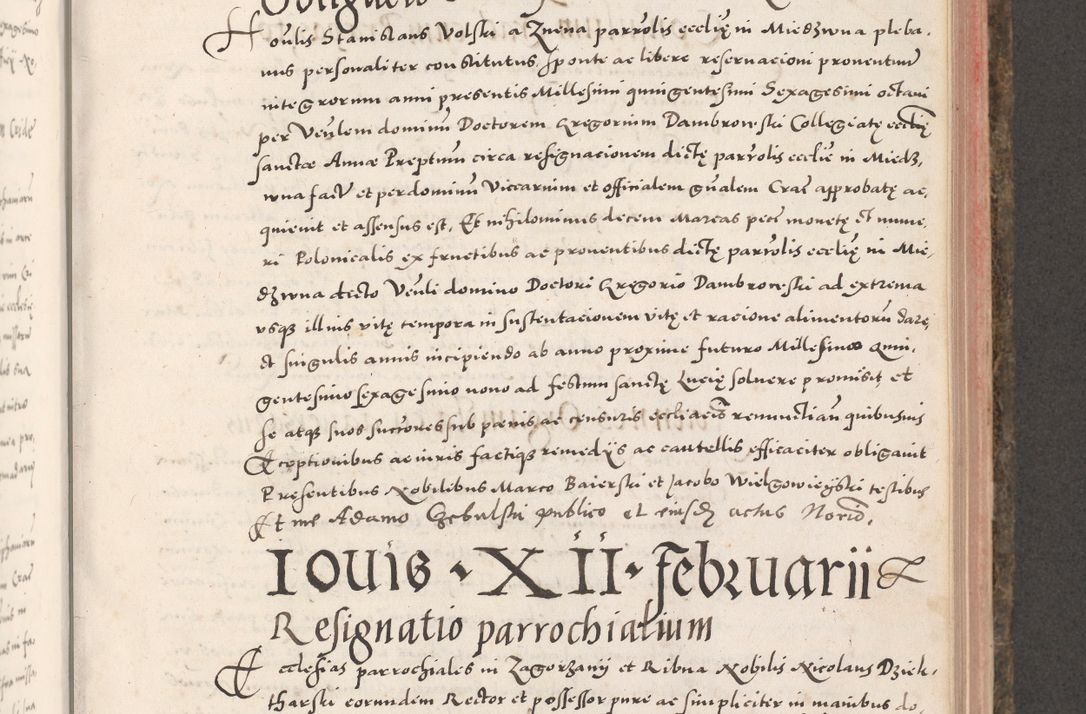 Hoνlis Stanislaus Volski a Znena parrolis ecclię in Miedzwna pleba,
nus personaliter constitutus, Sponte ac libere reservacioni proventuum
integrorum anni presentis Millesimi quingentesimi Sexagesimi octavi
per Venlem dominū Doctorem Gregorium Dambrowski Collegiatę ecclię
sanctæ Annæ Preptum circa resignacionem dictę parrolis ecclię in Miedz,
wna fact et per dominū Viccarium et officialem gnalem Crac approbatę ac,
quievit et assensus est, Et nihilominus decem Marcas peci monetę et nume,
ri Polonicalis ex fructibus ac proventibus dictę parrolis ecclię in Mie,
dzwna dicto Venli domino Doctori Gregorio Dambrowski ad extrema
usqƺ illius vitę tempora in sustentacionem vitę et racione alimentorū dare,
et singulis annis incipiendo ab anno proxime futuro Millesimo Quin,
gentesimo sexagesimo nono ad festum sanctę Lucię solvere promisit et
se atqƺ suos succores sub pœnis ac censuris eccliacis renunctian quibusvis
Exceptionibus ac iuris factiqƺ remedys ac cauttellis efficaciter obligavit
Presentibus Nobilibus Marco Baierski et Jacobo Wielgowieyski testibus
Et me Adamo Chebulski publico et eiusd actus Norio.
IOVIS · XII · Februarii
Resignatio parrochialium
Ecclesias parrochiales in Zagorzany et Ribna Nobilis Nicolaus Dziek,
tharski eorundem Rector et possessor pure ac simpliciter in manibus do,